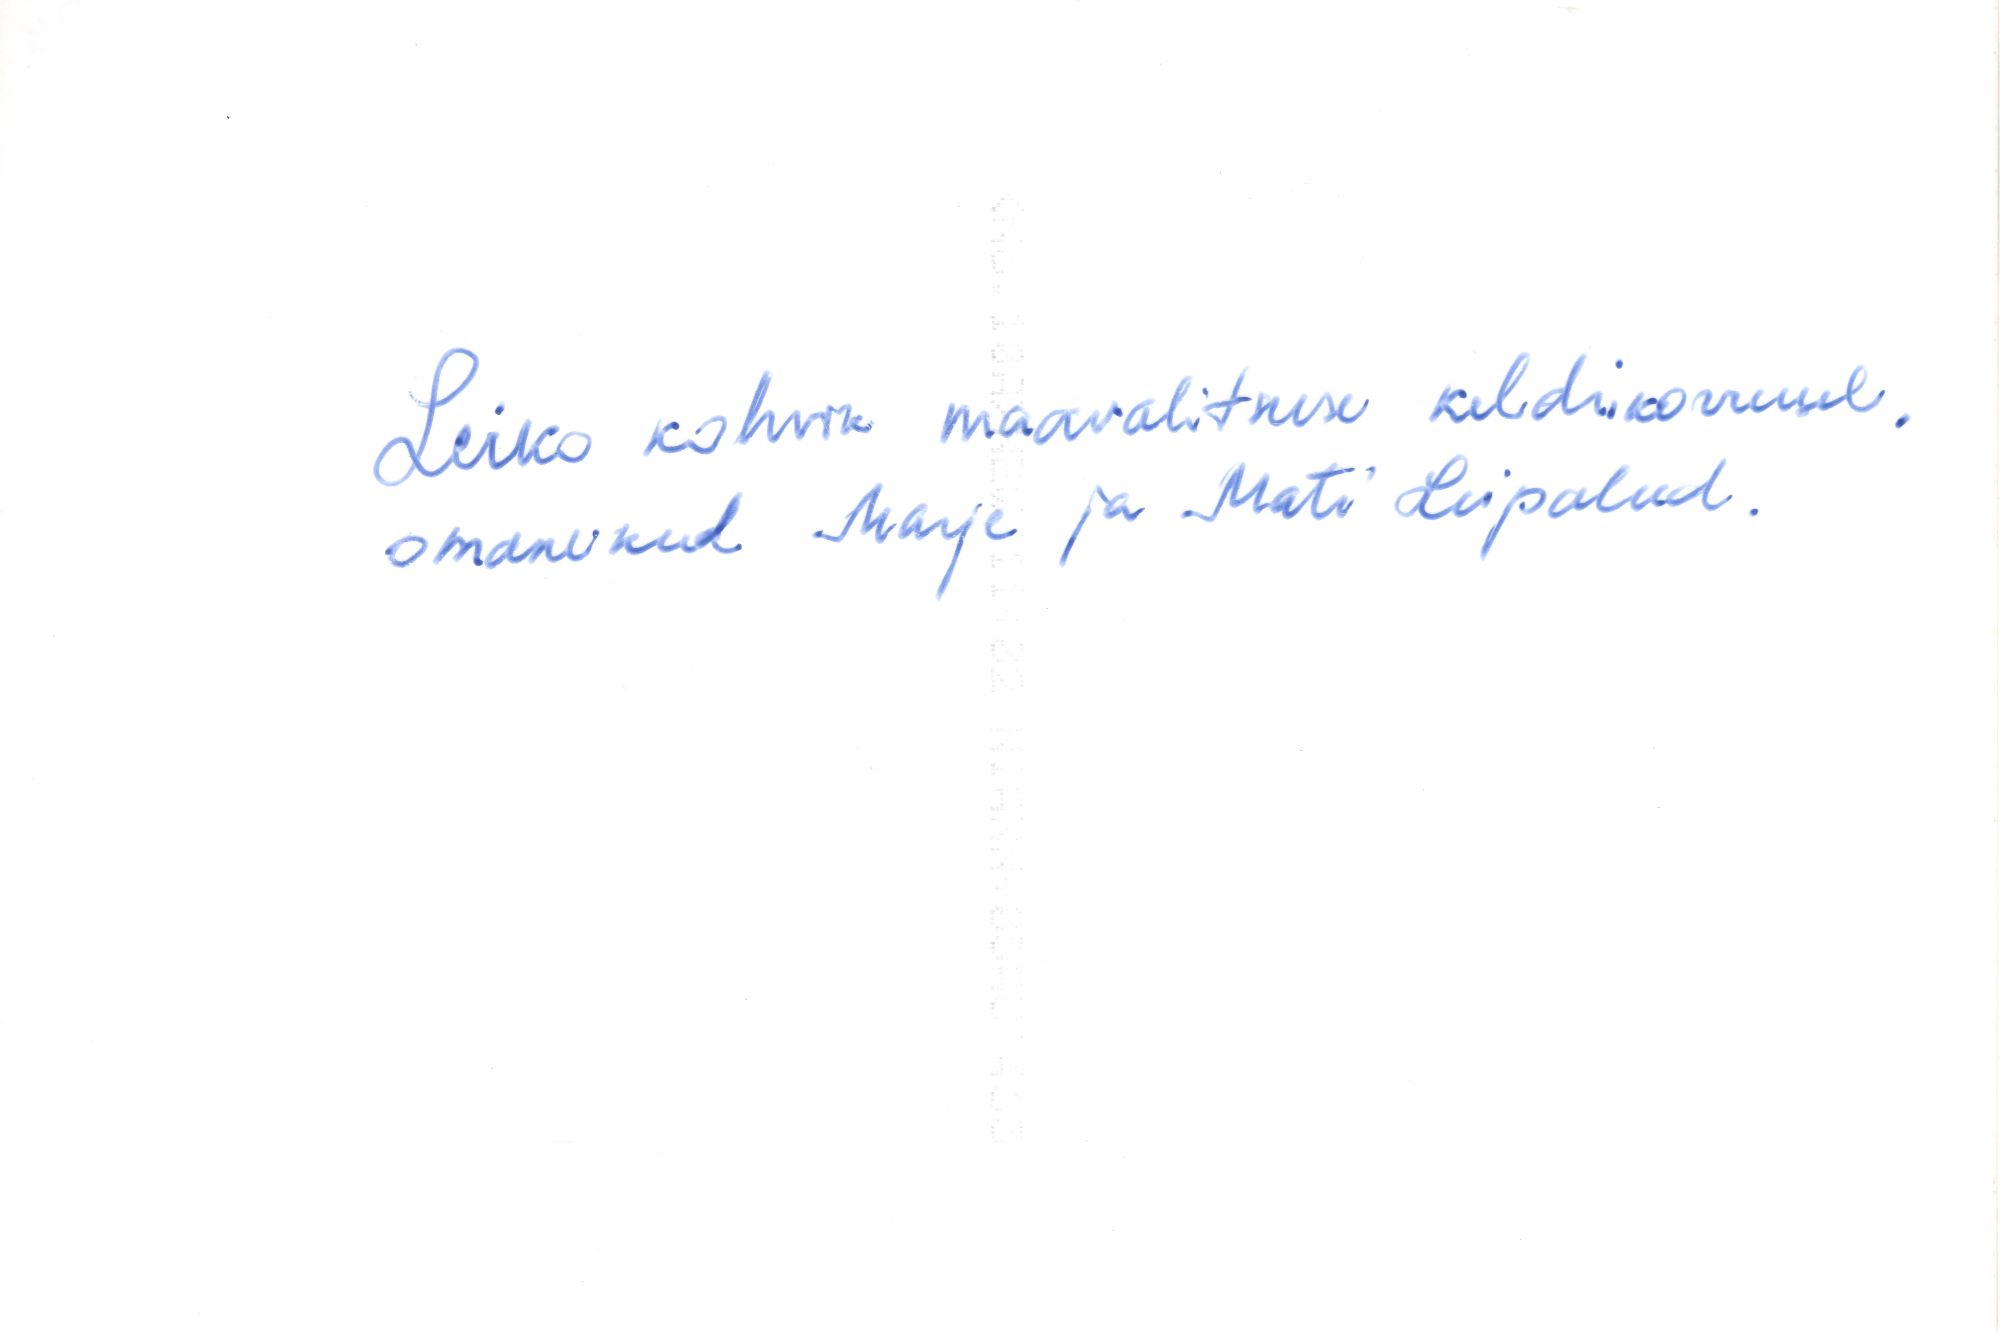 Leiko kohvik maavalitsuse keldrikorrusel.
omanikud Marje ja Mati Leipalud.